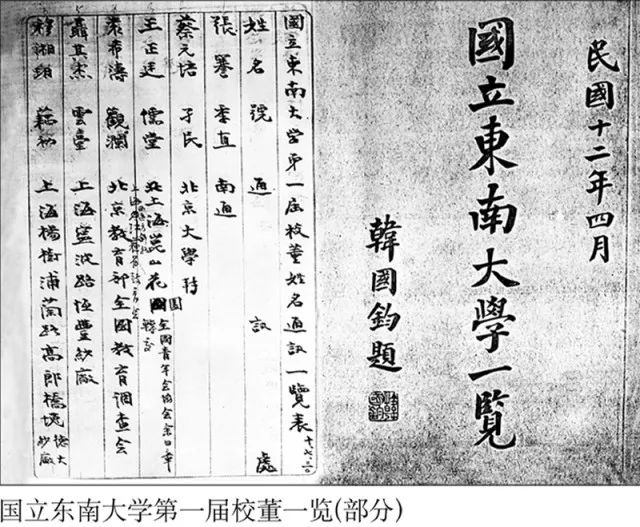 民國十二年四月
國立東南大學一覽
韓國鈞題
國立東南大学第一屆校董姓名通訊一覽表
姓名 號 通 訊 處
張謇 季直 南通
蔡元培 孑民 北京大學
王正廷 儒堂 上海崑山花園 全國青年会協会余日章轉交
袁希濤 觀瀾 北京教育部全國教育調查会
聶其杰 雲臺 上海寧波路恆豐紗廠
穆湘玥 藕初 上海楊樹浦蘭路高郎橋堍德大紗廠
国立东南大学第一届校董一览(部分)